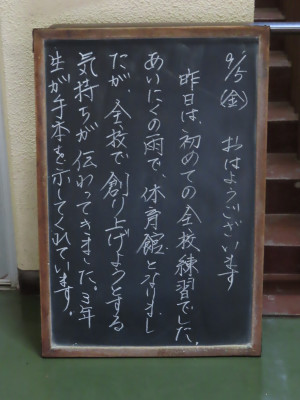 9/5(金) おはようございます
昨日は、初めての全校練習でした。
あいにくの雨で、体育館となりまし
たが、全校で創り上げようとする
気持ちが伝わってきました。3年
生が手本を示してくれています。